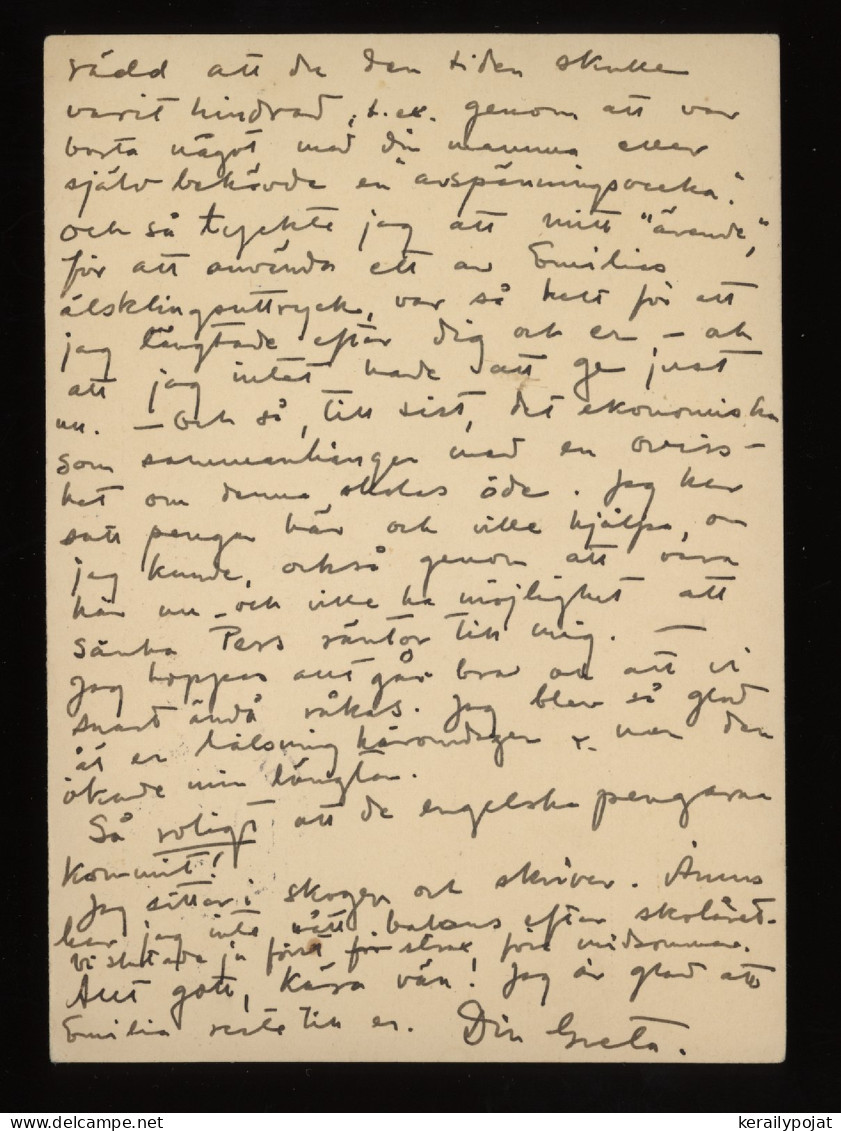 rädd att du den tiden skulle
varit hindrad, t.ex. genom att var
borta något med din mamma eller
själv behövde en "avspänningsvecka."
och så tyckte jag att mitt "ärende",
för att använda ett av Emilias
älsklingsuttryck, var så helt för att
jag längtade efter dig och er – och
att jag intet hade att ge just
nu. – Och så, till sist, det ekonomiska
som sammanhänger med en oviss-
het om denna skolas öde. Jag har
satt pengar här och ville hjälpa, om
jag kunde, också genom att vara
här nu – och ville ha möjlighet att
sänka Pers räntor till mig. —
Jag hoppas allt går bra och att vi
snart ändå råkas. Jag blev så glad
åt er hälsning häromdagen – men den
ökade min längtan.
Så roligt att de engelska pengarna
kommit!
Jag sitter i skogen och skriver. Ännu
har jag inte nått balans efter skolåret.
Vi slutade ju först för strax före midsommar.
Allt gott, kära vän! Jag är glad att
Emilia reste till er. Din Greta.
kerailypojat